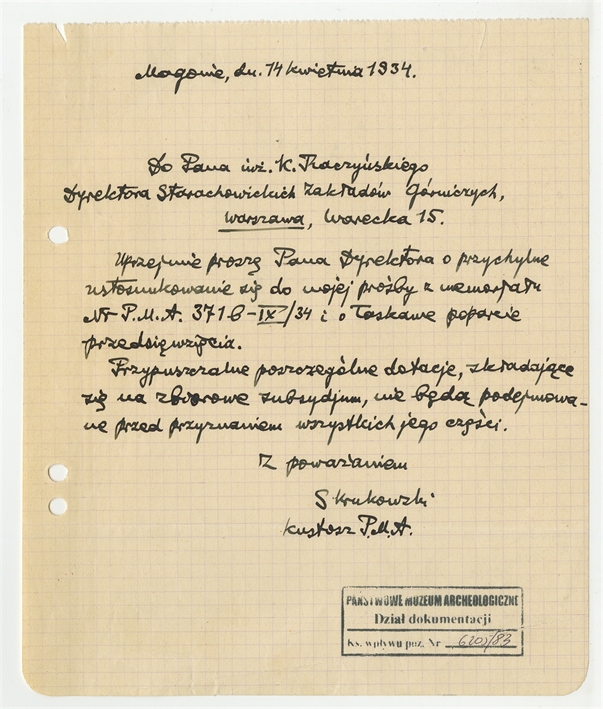 Magonie, dn. 14 kwietnia 1934.
Do Pana inż. K. Raczyńskiego
Dyrektora Starachowickich Zakładów Górniczych,
Warszawa, Warecka 15.
Uprzejmie proszę Pana Dyrektora o przychylne
ustosunkowanie się do mojej prośby z memorjału
Nr P.M.A. 371 B-IX/34 i o łaskawe poparcie
przedsięwzięcia.
Przypuszczalne poszczególne dotacje, składające
się na zbiorowe subsydjum, nie będą podejmowa-
ne przed przyznaniem wszystkich jego części.
Z poważaniem
S Krukowski
kustosz P.M.A.
PAŃSTWOWE MUZEUM ARCHEOLOGICZNE
Dział dokumentacji
Ks. wpływu poz. Nr